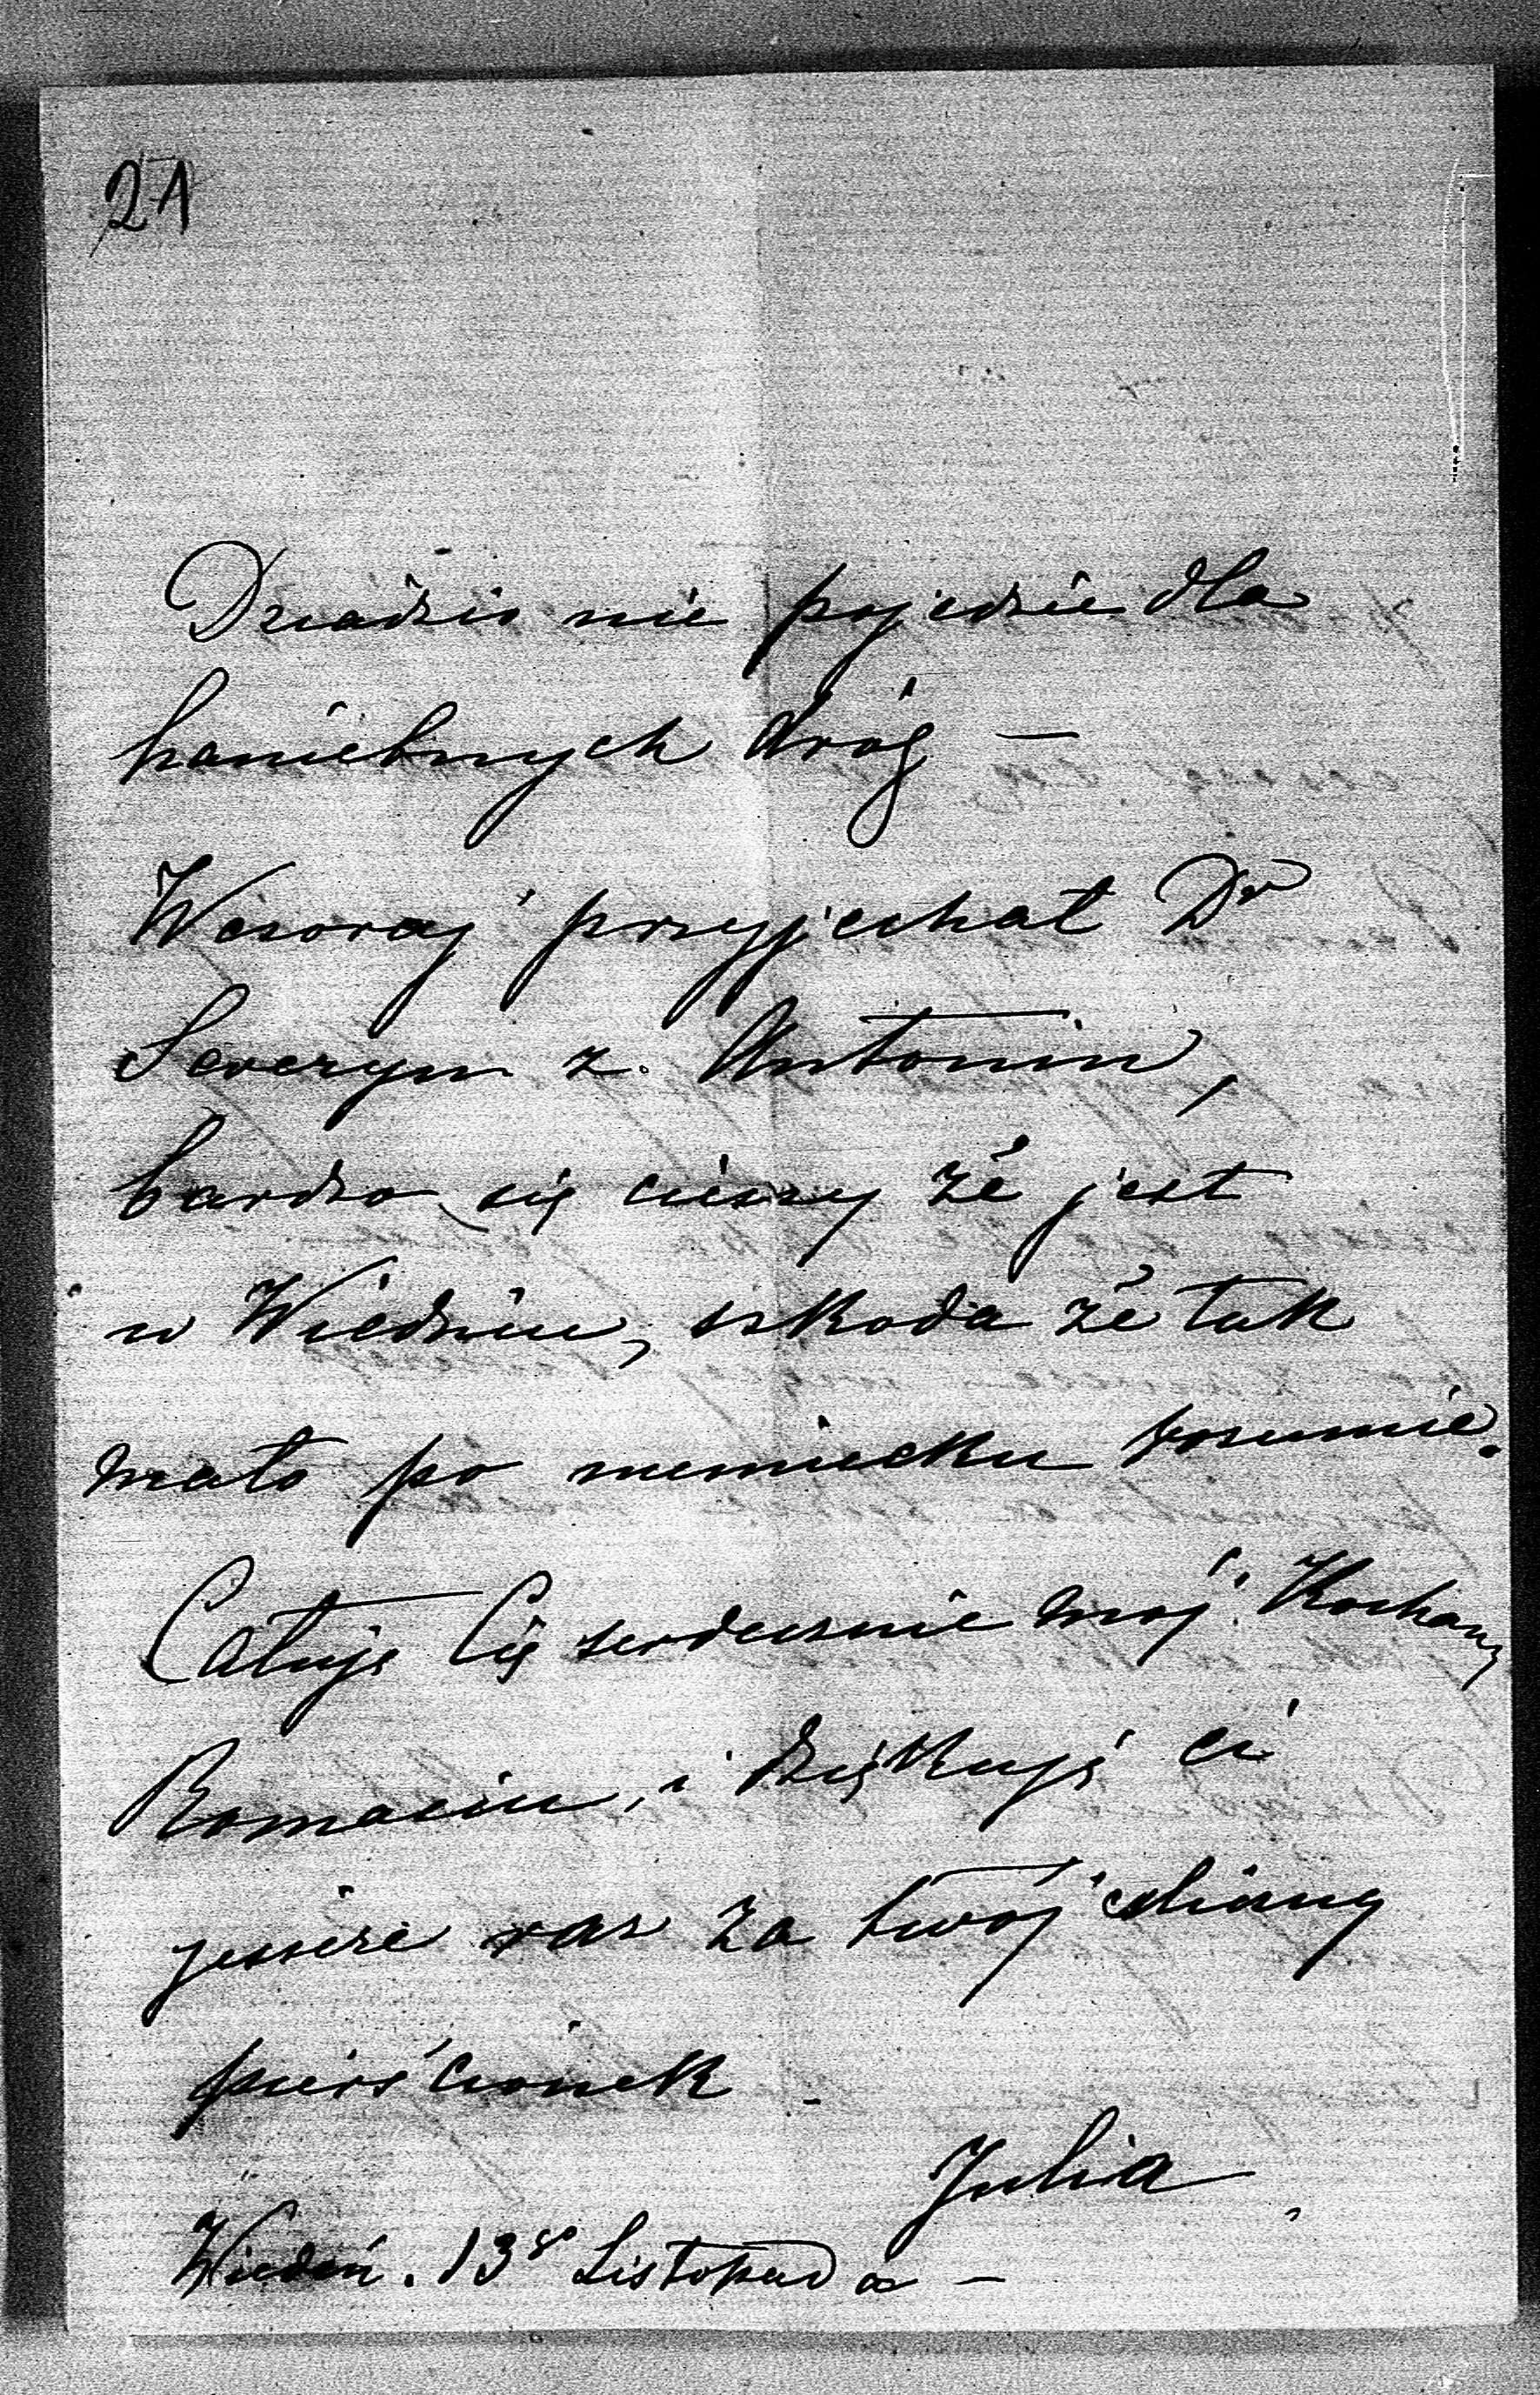 21
Dziadzio nie pojedzie dla
haniebnych dróg —
Wczoraj przyjechał Dr
Seweryn z. Antonin,
bardzo się cieszy że jest
w Wiedniu, szkoda że tak
mało po niemiecku rozumie.
Całuję Cię serdecznie mój Kochany
Romciu, i dziękuję ci
jeszcze raz za twój śliczny
pierścionek -
Julia
Wiedeń. 13go Listopada —